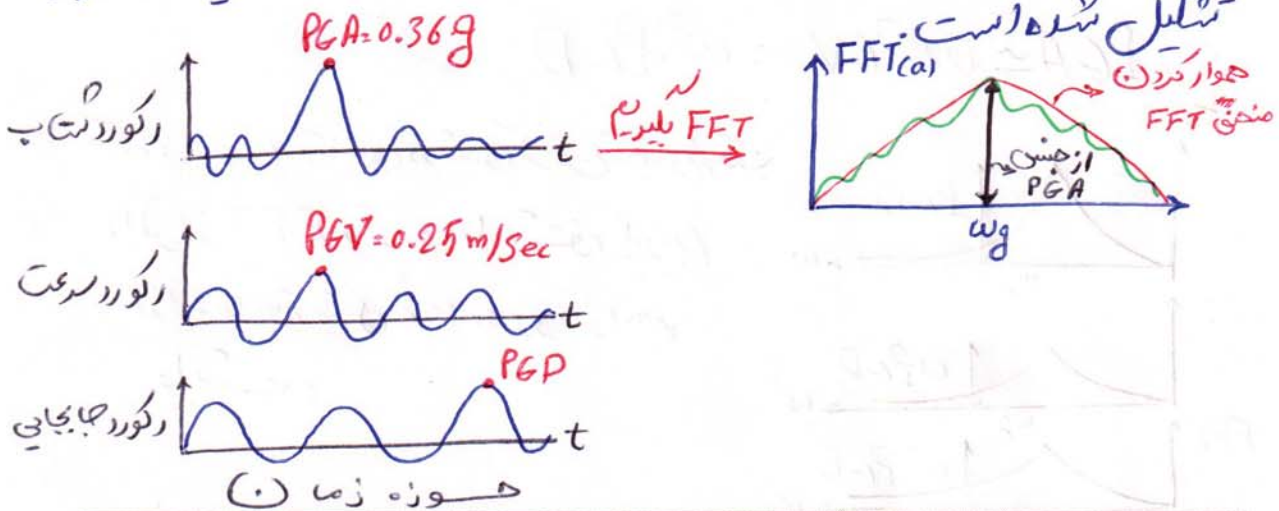 تشکیل شده است.
PGA=0.36g
رکورد شتاب
t
FFT بگیریم
FFT(a)
هموار کردن
منحنی FFT
از جنس
PGA
ωg
PGV=0.25m/Sec
رکورد سرعت
t
PGD
رکورد جابجایی
t
حوزه زمان